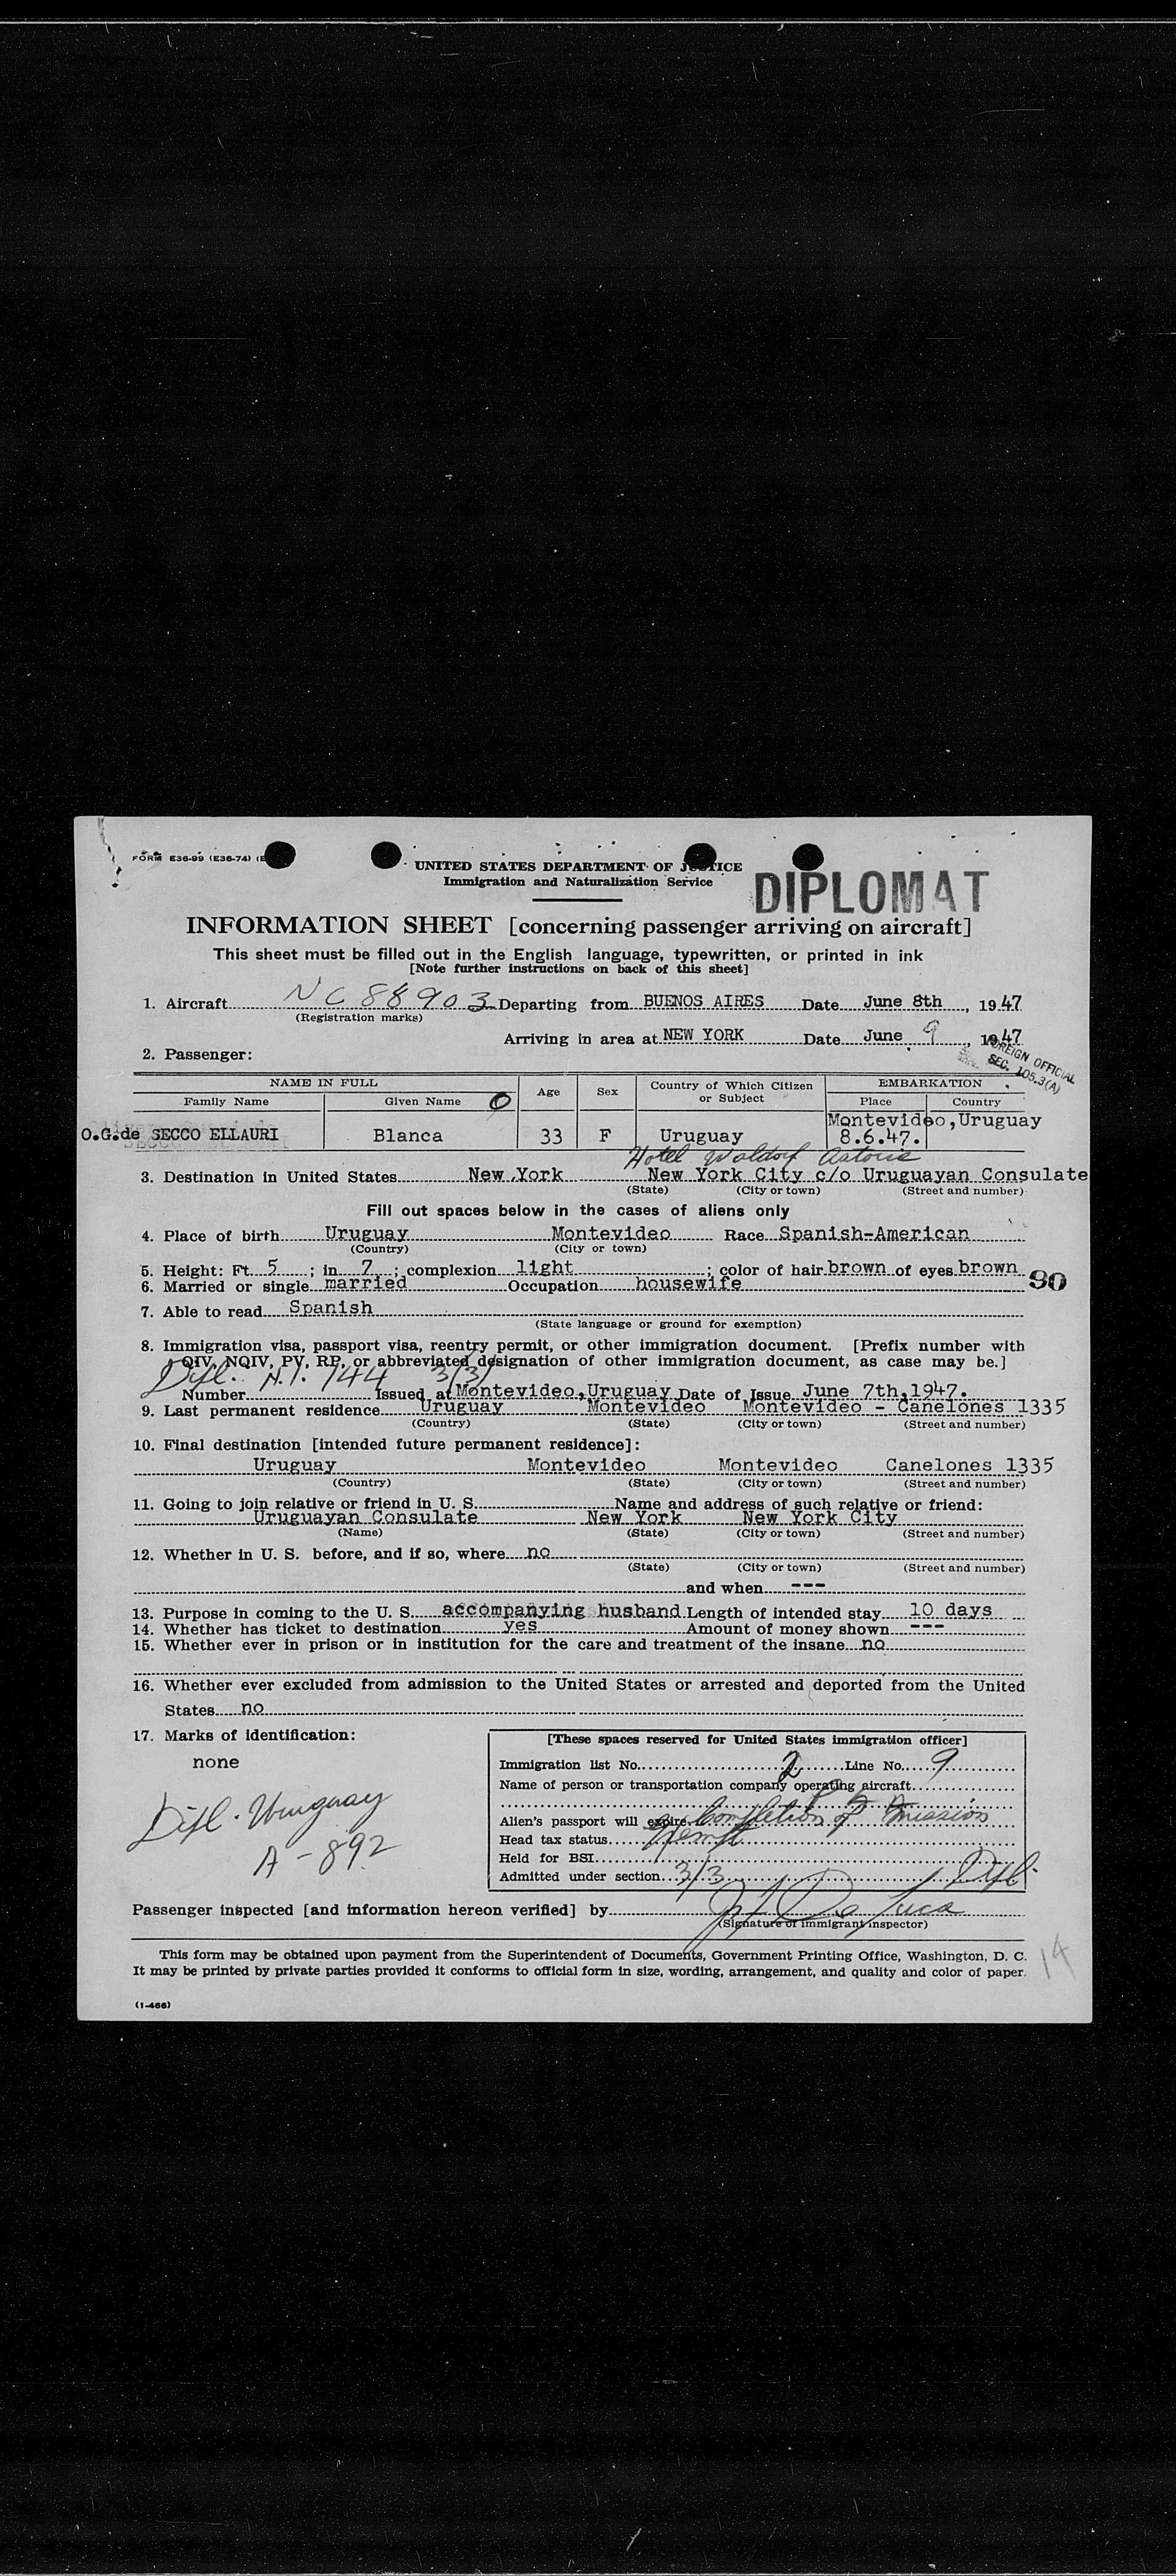 FORM E36-99 (E36-74) (E
UNITED STATES DEPARTMENT OF JUSTICE
Immigration and Naturalization Service
DIPLOMAT
INFORMATION SHEET [concerning passenger arriving on aircraft]
This sheet must be filled out in the English language, typewritten, or printed in ink
[Note further instructions on back of this sheet]
1. Aircraft NC 88903 Departing from BUENOS AIRES Date June 8th, 1947
(Registration marks)
Arriving in area at NEW YORK Date June 9, 1947
FOREIGN OFFICIAL
SEC. 105.3(A)
2. Passenger:
NAME IN FULL Age Sex Country of Which Citizen or Subject EMBARKATION
Family Name Given Name O Place Country
O.G.de SECCO ELLAURI Blanca 33 F Uruguay Montevideo,Uruguay
8.6.47.
Hotel Waldorf Astoria
3. Destination in United States New York New York City c/o Uruguayan Consulate
(State) (City or town) (Street and number)
Fill out spaces below in the cases of aliens only
4. Place of birth Uruguay Montevideo Race Spanish-American
(Country) (City or town)
5. Height: Ft. 5 ; in 7 ; complexion light ; color of hair brown of eyes brown
6. Married or single married Occupation housewife
90
7. Able to read Spanish
(State language or ground for exemption)
8. Immigration visa, passport visa, reentry permit, or other immigration document. [Prefix number with
QIV, NQIV, PV, RP, or abbreviated designation of other immigration document, as case may be.]
Dipl. N.I. 144 3(3)
Number Issued at Montevideo,Uruguay Date of Issue June 7th,1947.
9. Last permanent residence Uruguay Montevideo Montevideo - Canelones 1335
(Country) (State) (City or town) (Street and number)
10. Final destination [intended future permanent residence]:
Uruguay Montevideo Montevideo Canelones 1335
(Country) (State) (City or town) (Street and number)
11. Going to join relative or friend in U. S. Name and address of such relative or friend:
Uruguayan Consulate New York New York City
(Name) (State) (City or town) (Street and number)
12. Whether in U. S. before, and if so, where no
(State) (City or town) (Street and number)
and when ---
13. Purpose in coming to the U. S. accompanying husband Length of intended stay 10 days
14. Whether has ticket to destination yes Amount of money shown ---
15. Whether ever in prison or in institution for the care and treatment of the insane no
16. Whether ever excluded from admission to the United States or arrested and deported from the United
States no
17. Marks of identification:
none
Dipl. Uruguay
A-892
[These spaces reserved for United States immigration officer]
Immigration list No. 2 Line No. 9
Name of person or transportation company operating aircraft
P A A
Alien's passport will expire Completion of mission
Head tax status Exempt
Held for BSI
Admitted under section 3/3 Dipl.
Passenger inspected [and information hereon verified] by
(Signature of immigrant inspector)
This form may be obtained upon payment from the Superintendent of Documents, Government Printing Office, Washington, D. C.
It may be printed by private parties provided it conforms to official form in size, wording, arrangement, and quality and color of paper.
14
(1-466)